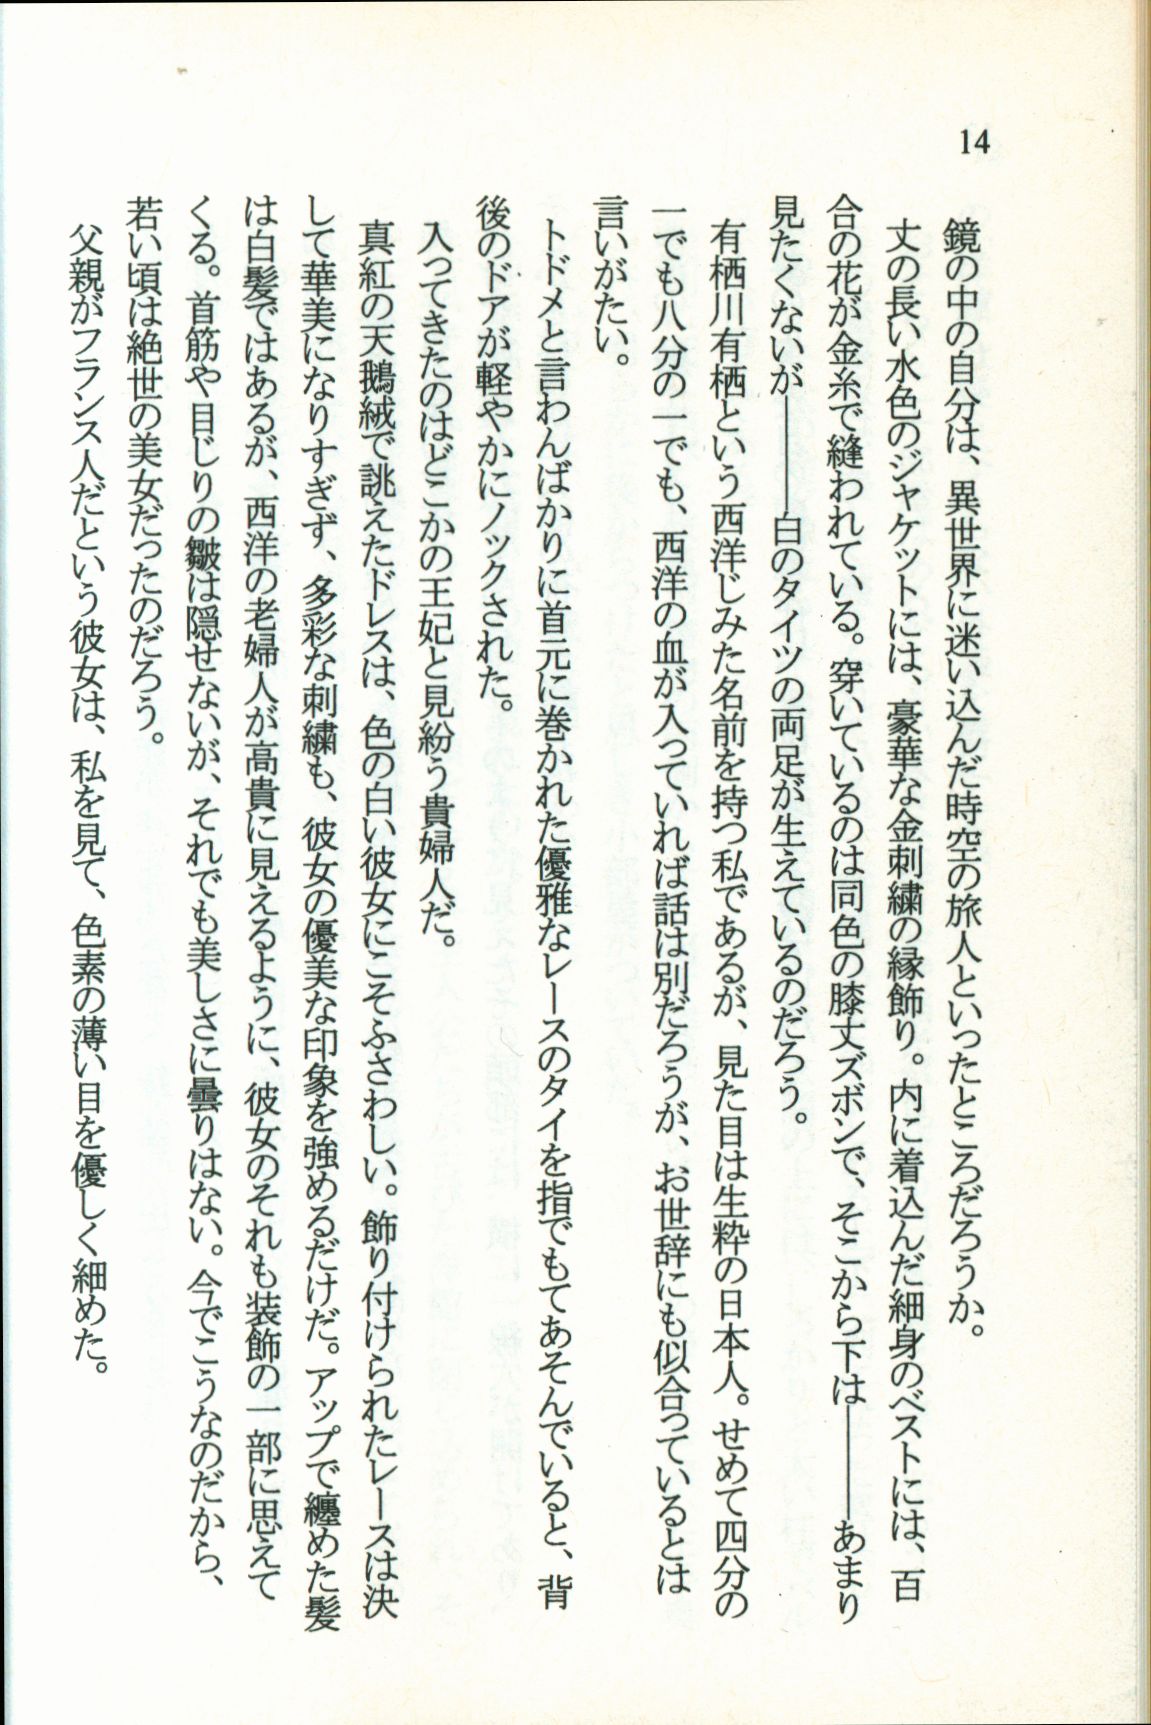 14
鏡の中の自分は、異世界に迷い込んだ時空の旅人といったところだろうか。
丈の長い水色のジャケットには、豪華な金刺繍の縁飾り。内に着込んだ細身のベストには、百
合の花が金糸で縫われている。穿いているのは同色の膝丈ズボンで、そこから下は――あまり
見たくないが――白のタイツの両足が生えているのだろう。
有栖川有栖という西洋じみた名前を持つ私であるが、見た目は生粋の日本人。せめて四分の
一でも八分の一でも、西洋の血が入っていれば話は別だろうが、お世辞にも似合っているとは
言いがたい。
トドメと言わんばかりに首元に巻かれた優雅なレースのタイを指でもてあそんでいると、背
後のドアが軽やかにノックされた。
入ってきたのはどこかの王妃と見紛う貴婦人だ。
真紅の天鵝絨で誂えたドレスは、色の白い彼女にこそふさわしい。飾り付けられたレースは決
して華美になりすぎず、多彩な刺繍も、彼女の優美な印象を強めるだけだ。アップで纏めた髪
は白髪ではあるが、西洋の老婦人が高貴に見えるように、彼女のそれも装飾の一部に思えて
くる。首筋や目じりの皺は隠せないが、それでも美しさに曇りはない。今でこうなのだから、
若い頃は絶世の美女だったのだろう。
父親がフランス人だという彼女は、私を見て、色素の薄い目を優しく細めた。